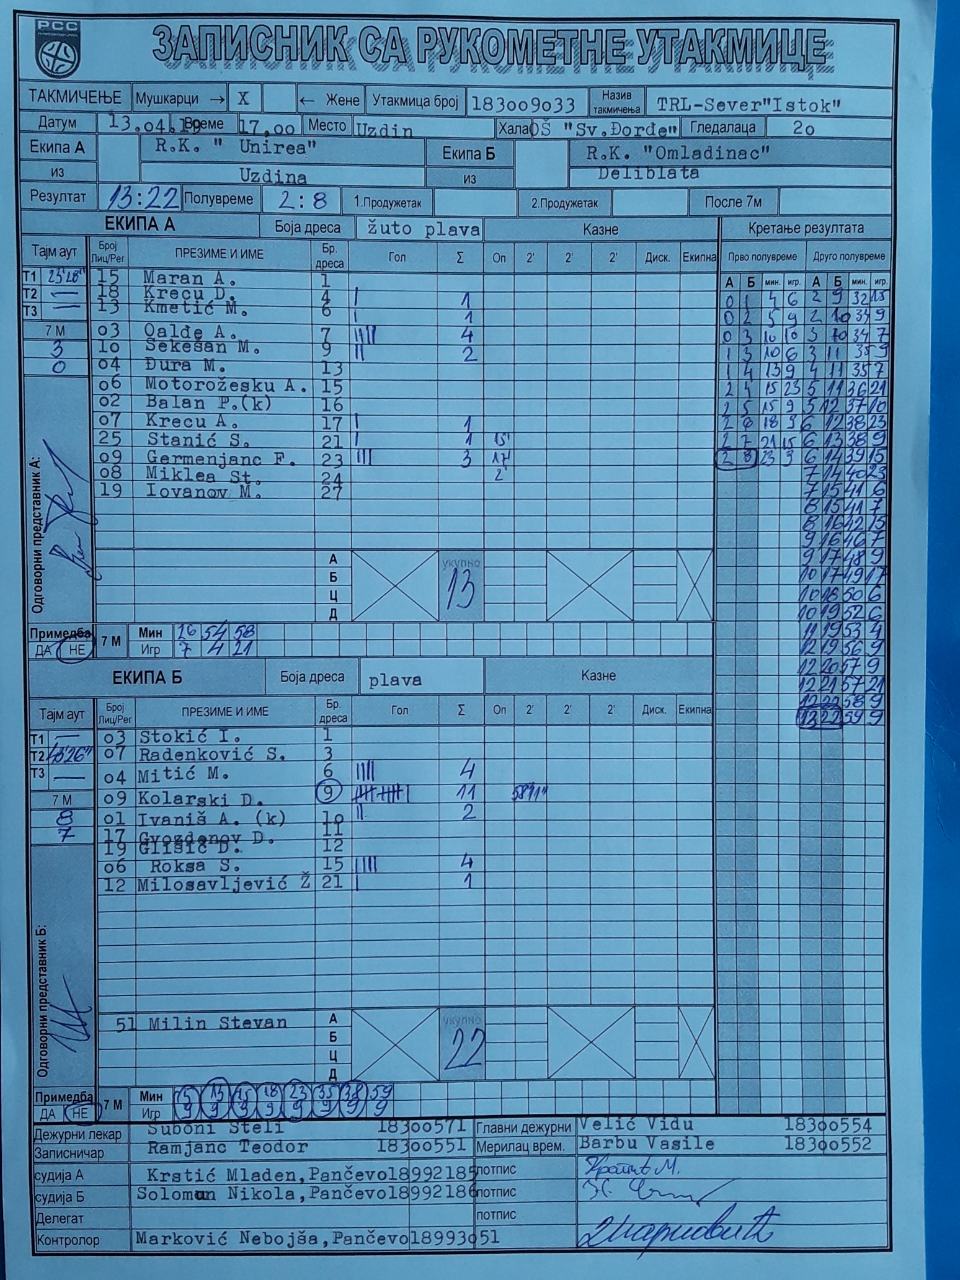 РСС
ЗАПИСНИК СА РУКОМЕТНЕ УТАКМИЦЕ
ТАКМИЧЕЊЕ Мушкарци → X ← Жене Утакмица број 183oo9o33 Назив такмичења TRL-Sever"Istok"
Датум 13.o4.19 Време 17,oo Место Uzdin Хала OŠ "Sv.Đorđe" Гледалаца 2o
Екипа А R.K. " Unirea" Екипа Б R.K. "Omladinac"
из Uzdina из Deliblata
Резултат 13:22 Полувреме 2:8 1.Продужетак 2.Продужетак После 7м
ЕКИПА А Боја дреса žuto plava Казне Кретање резултата
Тајм аут Број Лиц/Рег ПРЕЗИМЕ И ИМЕ Бр. дреса Гол Σ Оп 2' 2' 2' Диск. Екипна Прво полувреме Друго полувреме
А Б мин. игр. А Б мин. игр.
Т1 15 Maran A. 1
Т2 — 18 Krecu D. 4 I 1
Т3 — 13 Kmetić M. 6 I 1
7 М o3 Oalđe A. 7 IIII 4
3 1o Sekešan M. 9 II 2
0 o4 Đura M. 13
o6 Motorožesku A. 15
o2 Balan P.(k) 16
o7 Krecu A. 17 I 1
25 Stanić S. 21 I 1 15'
o9 Germenjanc F. 23 III 3 17'
o8 Miklea St. 24 2'
19 Iovanov M. 27
0 1 4 6 2 9 32 15
0 2 5 9 2 10 34 9
0 3 10 10 3 10 34 7
1 3 10 6 3 11 35 9
1 4 13 9 4 11 35 7
2 4 15 23 5 11 36 21
2 5 15 9 5 12 37 10
2 6 18 9 6 12 38 23
2 7 21 15 6 13 38 9
2 8 23 9 6 14 39 15
7 14 40 23
7 15 41 6
8 15 41 7
8 16 42 15
9 16 46 7
9 17 48 9
10 17 49 17
10 18 50 6
10 19 52 6
11 19 53 4
12 19 56 9
12 20 57 9
12 21 57 21
12 22 58 9
13 22 59 9
Одговорни представник А:
А
Б
Ц
Д
укупно
13
Примедба ДА НЕ 7 М Мин 26 54 58
Игр 7 4 21
ЕКИПА Б Боја дреса plava Казне
Тајм аут Број Лиц/Рег ПРЕЗИМЕ И ИМЕ Бр. дреса Гол Σ Оп 2' 2' 2' Диск. Екипна
Т1 — o3 Stokić I. 1
Т2 o7 Radenković S. 3
Т3 — o4 Mitić M. 6 IIII 4
7 М o9 Kolarski D. 9 11
8 o1 Ivaniš A. (k) 1o II 2
7 17 Gvozdenov D. 11
19 Glišić D. 12
o6 Roksa S. 15 IIII 4
12 Milosavljević Ž 21 I 1
Одговорни представник Б:
51 Milin Stevan
А
Б
Ц
Д
укупно
22
Примедба ДА НЕ 7 М Мин 5 13 15 18 23 35 38 59
Игр 9 9 9 9 9 9 9 9
Дежурни лекар Suboni Steli 183oo571 Главни дежурни Velić Vidu 183oo554
Записничар Ramjanc Teodor 183oo551 Мерилац врем. Barbu Vasile 183oo552
судија А Krstić Mladen,Pančevo18992185 потпис
судија Б Soloman Nikola,Pančevo18992186 потпис
Делегат потпис
Контролор Marković Nebojša,Pančevo18993o51